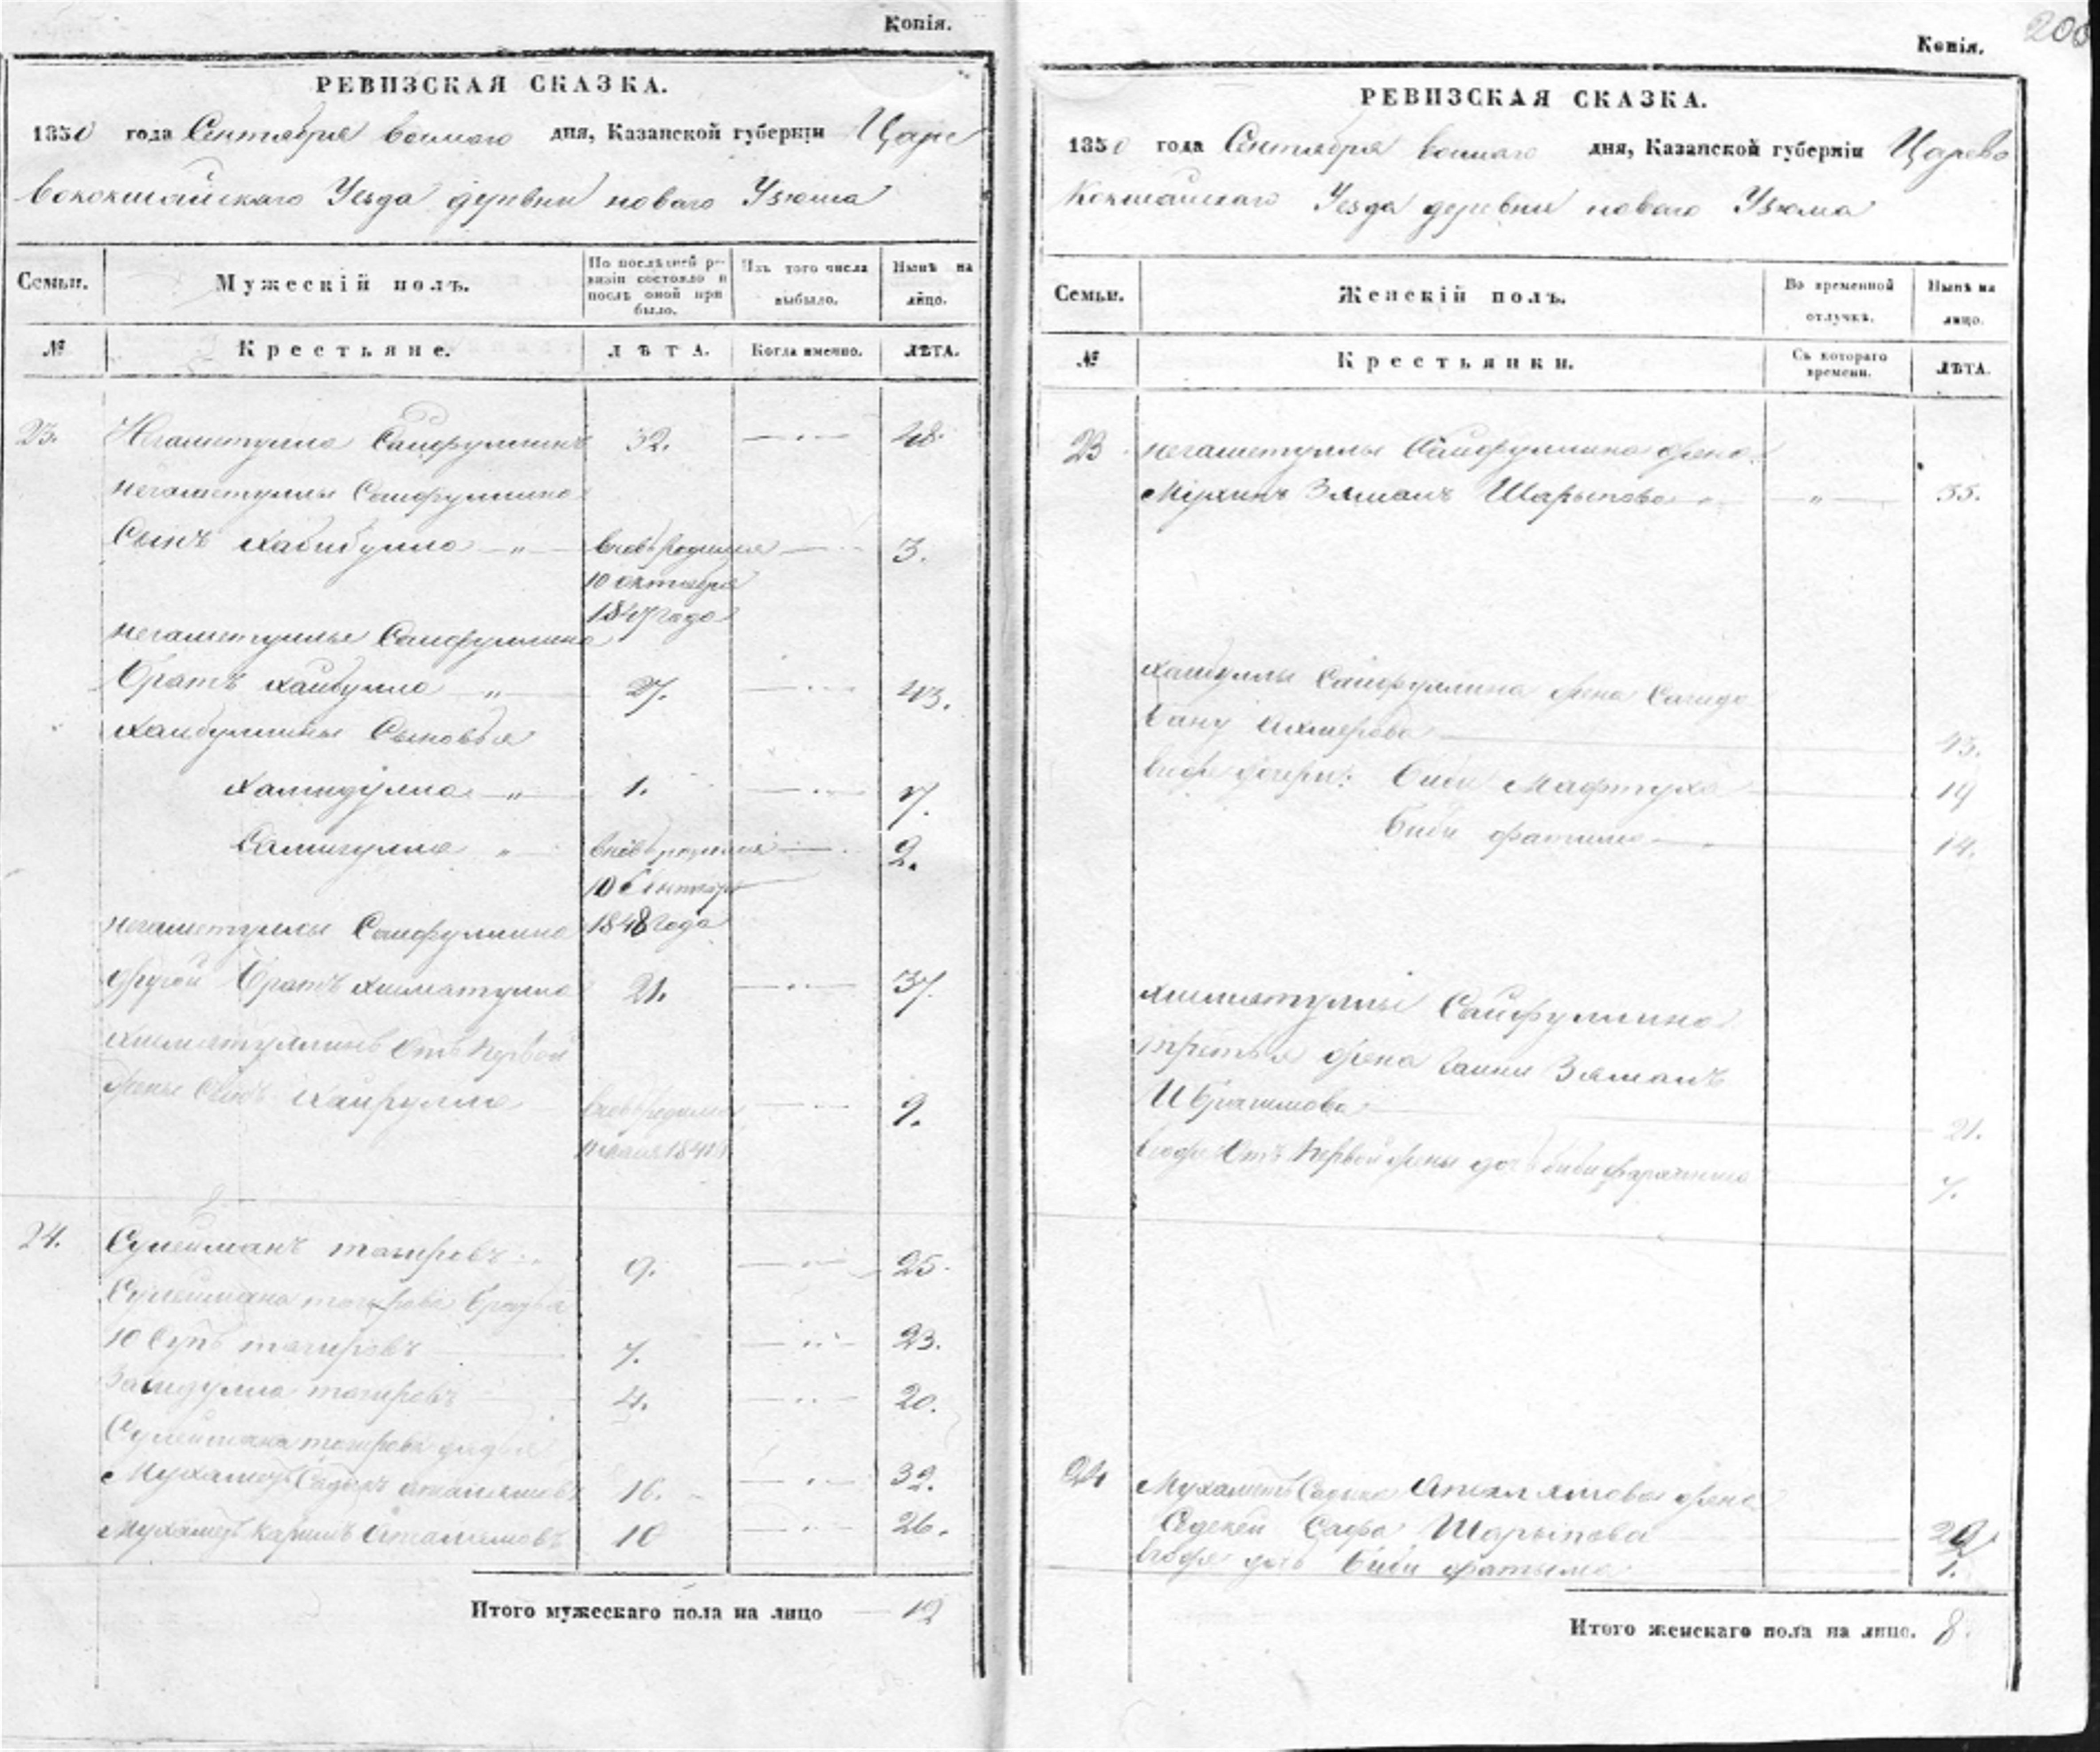 Копія.
РЕВИЗСКАЯ СКАЗКА.
1850 года Сентября восмаго дня, Казанской губерніи Царе
вококшайскаго Уезда деревни новаго Узюма
Семьи. Мужескій полъ. По послѣдней ре- Изъ того числа Нынѣ на
визіи состояло и выбыло. лицо.
послѣ оной при
было.
№ Крестьяне. ЛѢТА. Когда именно. ЛѢТА.
23. Негаметулла Сайфуллинъ 32. 48.
Негаметуллы Сайфуллина
Сынъ Хабибулла " вновь родился 3.
10 октября
1847 года
Негаметуллы Сайфуллина
Братъ Хайбулла " 27. 43.
Хайбуллины Сыновья
Халидулла " 1. 17.
Самигулла " вновь родился 2.
10 Сентября
1848 года
Негаметуллы Сайфуллина
другой Братъ Хисматулла 21. 37.
Хисматуллинъ Отъ Первой
жены Сынъ Хайрулла вновь родился 9.
1841
24. Сулейманъ тагировъ 9. 25.
Сулеймана тагирова братья
Юсупъ тагировъ 7. 23.
тагировъ 4. 20.
Сулеймана тагирова дядья
Мухаметъ Садыкъ Аталямовъ 16. 32.
Мухаметъ Каримъ Аталямовъ 10 26.
Итого мужескаго пола на лицо 12
Копія.
РЕВИЗСКАЯ СКАЗКА.
1850 года Сентября восмаго дня, Казанской губерніи Царево
Кокшайскаго Уезда деревни новаго Узюма
Семьи. Женскій полъ. Во временной Нынѣ на
отлучкѣ. лицо.
№ Крестьянки. Съ котораго ЛѢТА.
времени.
23 Негаметуллы Сайфуллина жена
Зямалъ Шарыпова " " 35.
Хайбуллы Сайфуллина жена Сагида
Бану Ахмерова 43.
Биби Мафтуха 19
Биби фатима 14.
Хисматуллы Сайфуллина
третья жена Зямалъ
Ибрагимова 21.
Отъ Первой жены дочь биби 7.
24 Мухаметъ Садыка Аталямова жена
Сафа Шарыпова 29
дочь Биби фатыма 1.
Итого женскаго пола на лицо. 8.